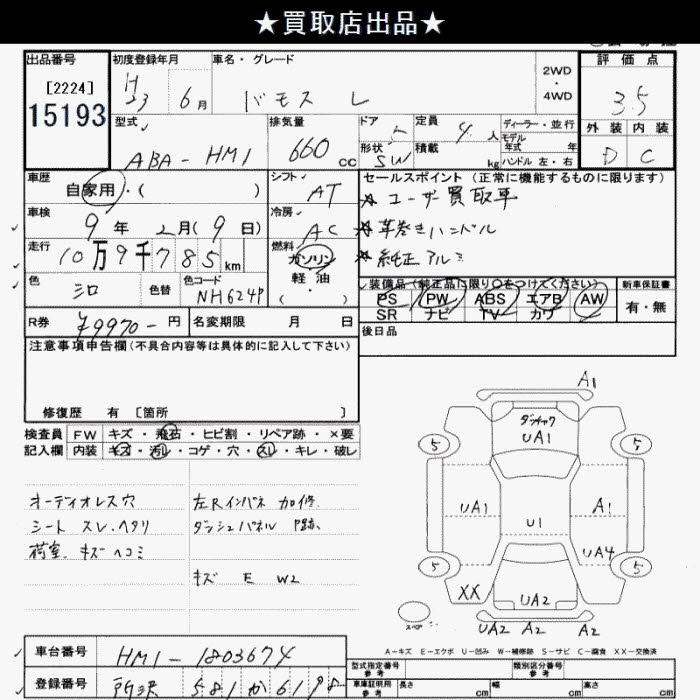 ★買取店出品★
出品番号
[2224]
15193
初度登録年月
H23 6月
車名・グレード
バモス L
2WD
・
4WD
評価点
3.5
外装 内装
D C
型式
ABA-HM1
排気量
660 cc
ドア 5
形状 SW
定員 4人
積載 kg
ディーラー・並行
モデル
年式 年
ハンドル 左・右
車歴
自家用・( )
シフト
AT
車検
9年 2月(9日)
冷房
AC
走行
10万9千785km
燃料
ガソリン
軽油
( ・ )
色
シロ
色替
色コード
NH624P
R券 ¥9970-円
名変期限 月 日
セールスポイント (正常に機能するものに限ります)
★ユーザー買取車
★革巻きハンドル
★純正アルミ
装備品(純正品に限り○をつけてください)
PS PW ABS エアB AW
SR ナビ TV カワ
新車保証書
有・無
後日品
注意事項申告欄(不具合内容等は具体的に記入して下さい)
修復歴 有 [箇所 ]
検査員
記入欄
FW キズ・飛石・ヒビ割・リペア跡・×要
内装 キズ・汚レ・コゲ・穴・スレ・キレ・破レ
オーディオレス穴
シート スレ・ヘタリ
荷室 キズ ヘコミ
左Rインパネ 加修
ダッシュパネル P跡
キズ E W2
A1
ダンチャク
UA1
5 5
UA1
U1
A1
UA4
5 5
XX
UA2
UA2 A2 A2
スペア
A-キズ E-エクボ U-凹み W-補修跡 S-サビ C-腐食 XX-交換済
車台番号 HM1-1803674
登録番号 所沢 581 か 6198
型式指定番号
参考
類別区分番号
参考
車庫証明用
参考
長さ cm
幅 cm
高さ cm